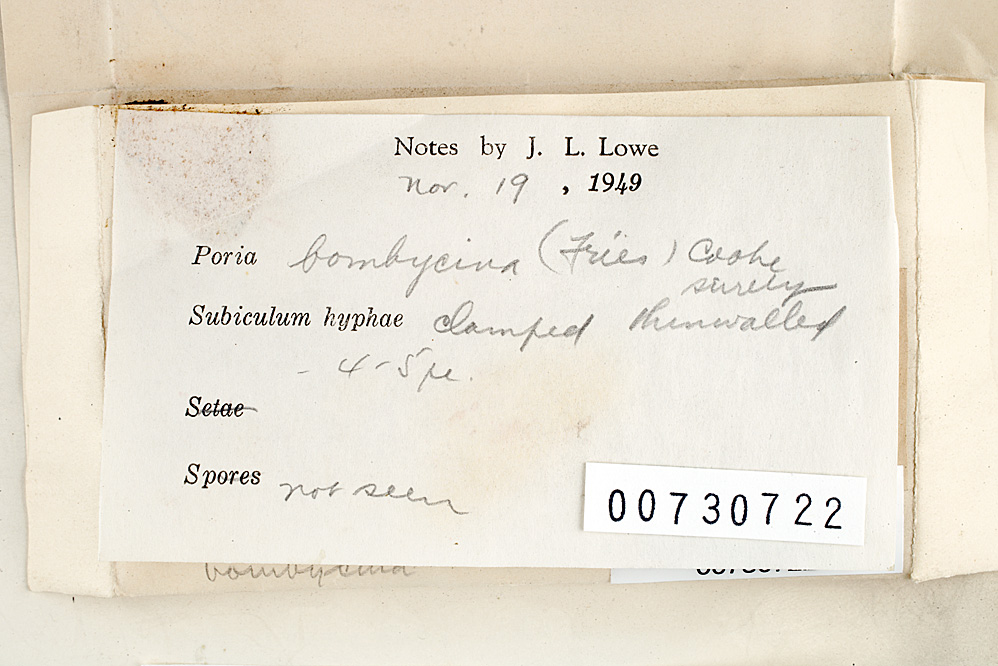 Notes by J. L. Lowe
Nov. 19, 1949
Poria bombycina (Fries) Cooke
surely
Subiculum hyphae clamped thinwalled
- 4-5 µ.
Setae
Spores not seen
00730722
bombycina